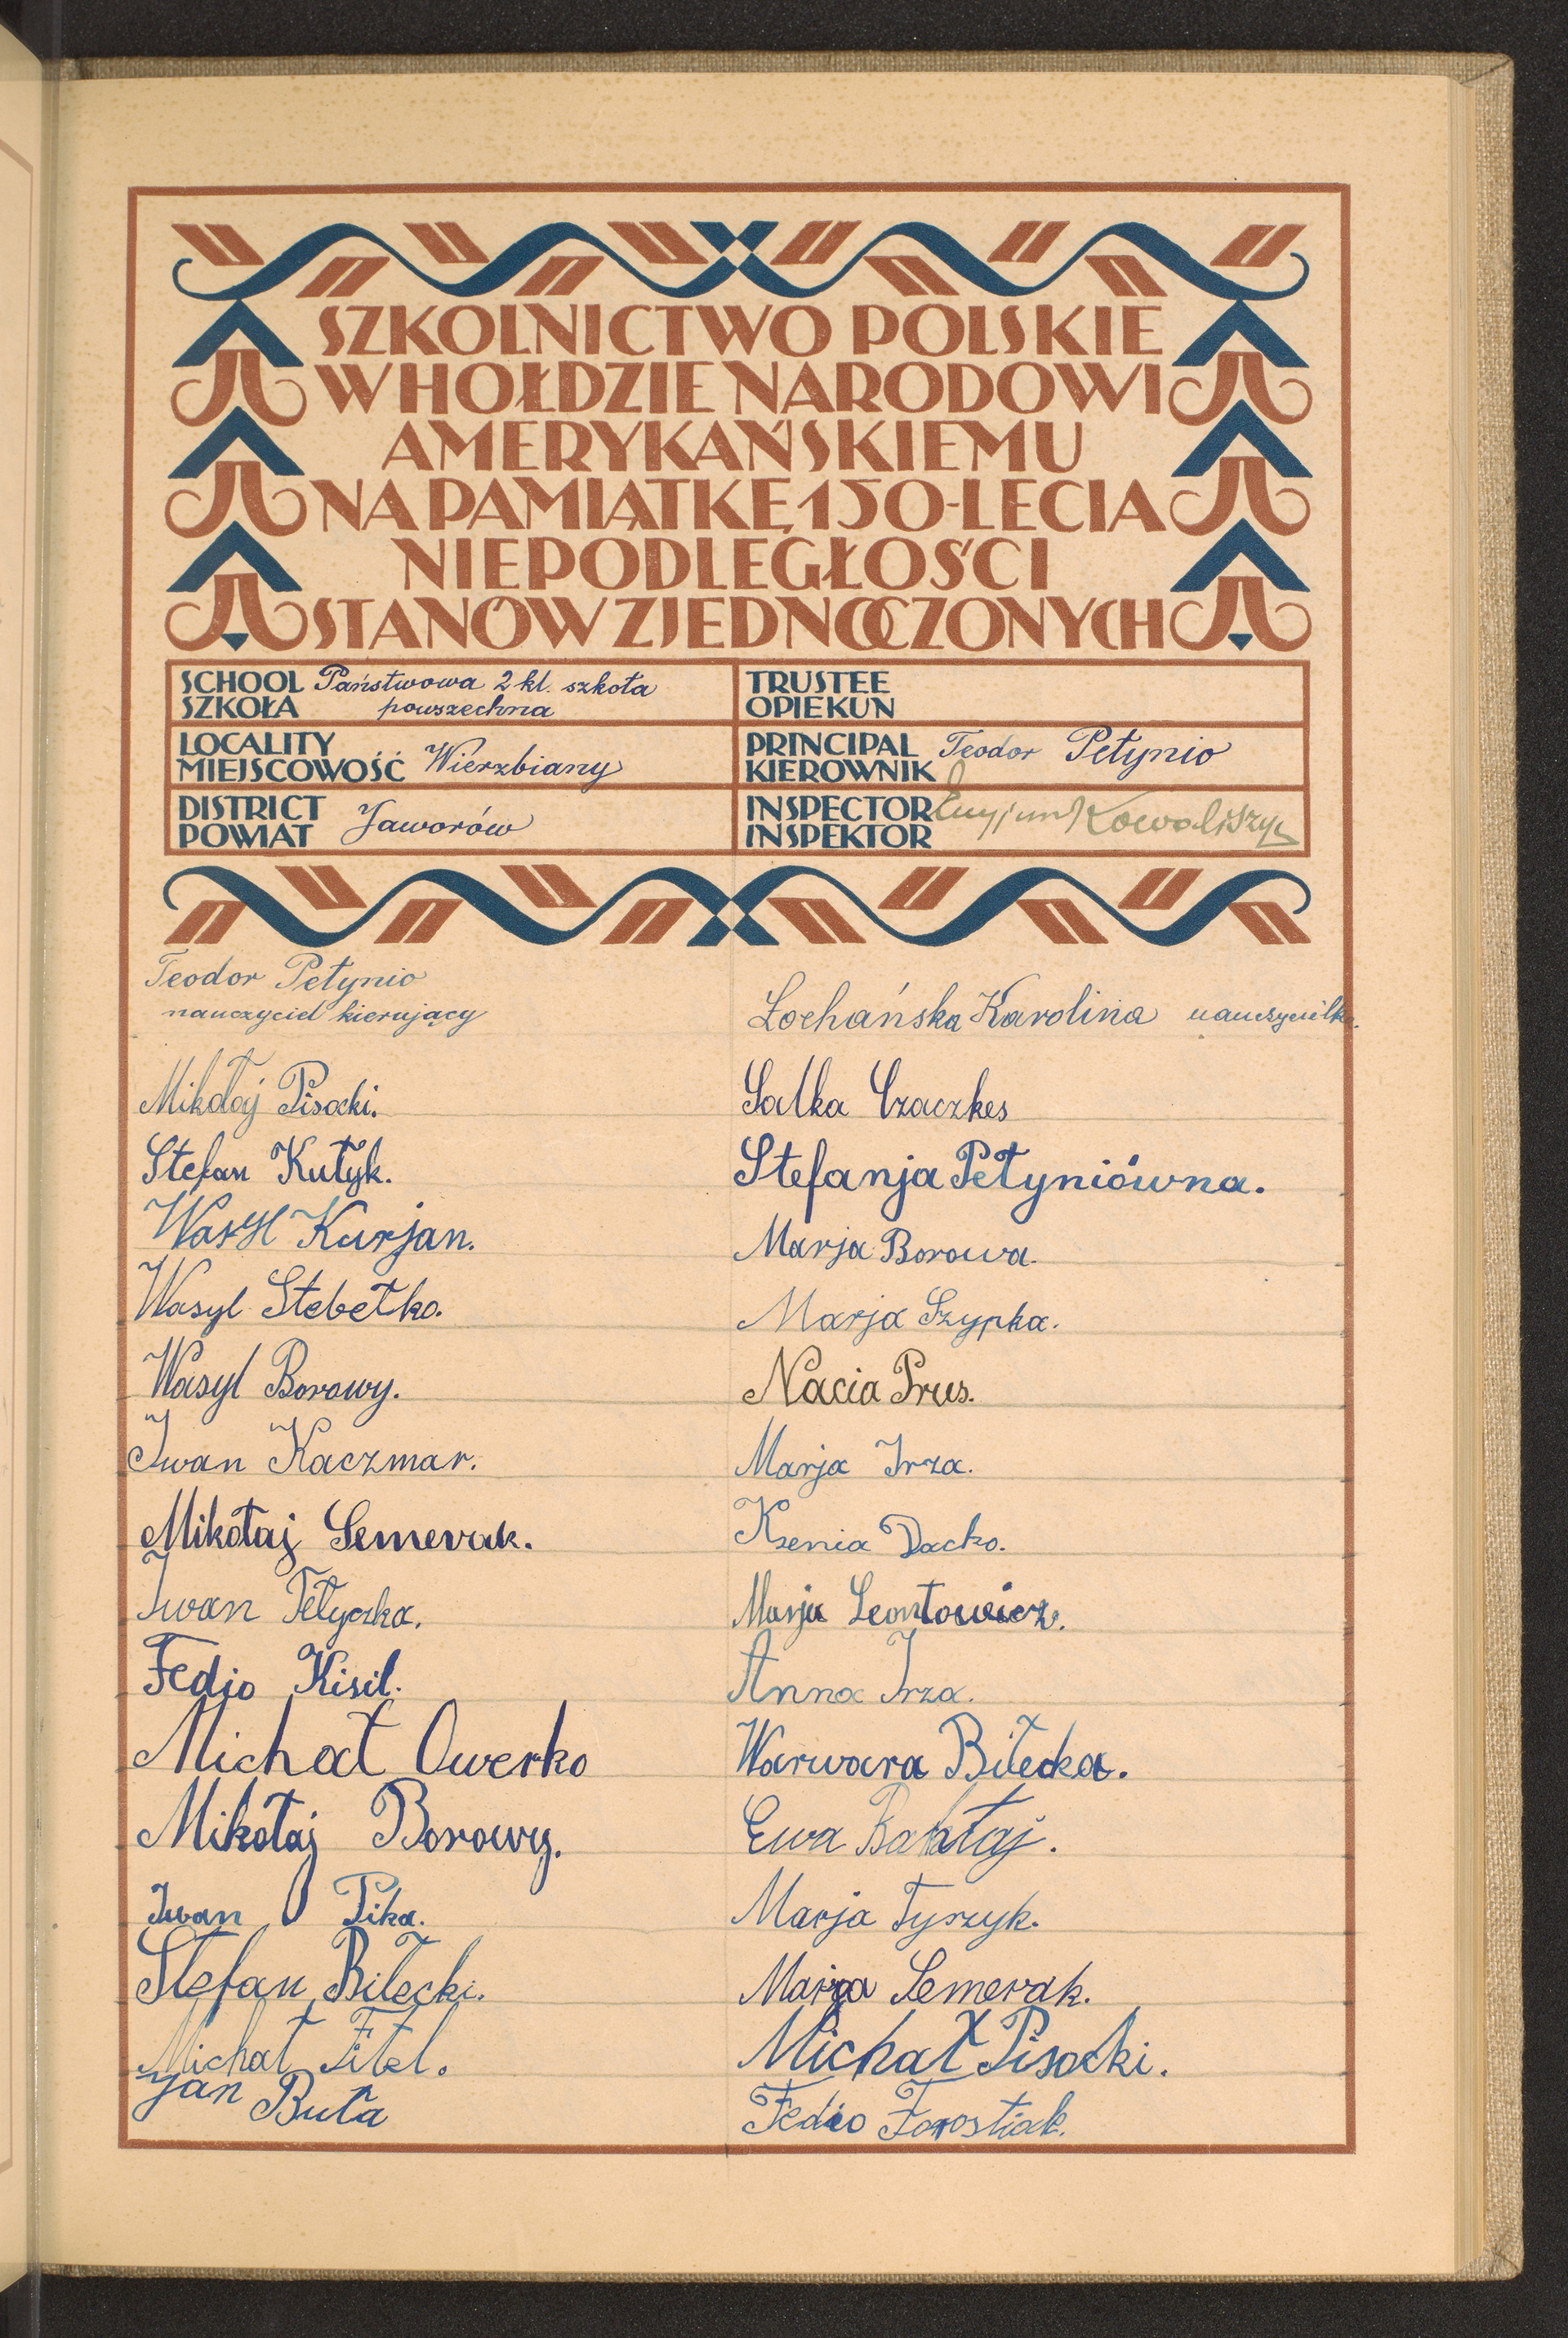 SZKOLNICTWO POLSKIE
W HOŁDZIE NARODOWI
AMERYKAŃSKIEMU
NA PAMIĄTKĘ 150-LECIA
NIEPODLEGŁOŚCI
STANÓW ZJEDNOCZONYCH
SCHOOL SZKOŁA Państwowa 2 kl. szkoła
powszechna
TRUSTEE
OPIEKUN
LOCALITY
MIEJSCOWOŚĆ Wierzbiany
PRINCIPAL
KIEROWNIK Teodor Petynio
DISTRICT
POWIAT Jaworów
INSPECTOR
INSPEKTOR Kowaliszyn
Teodor Petynio
nauczyciel kierujący
Mikołaj Pisocki.
Stefan Kutyk.
Wasyl Kurjan.
Wasyl Stebełko.
Wasyl Borowy.
Iwan Kaczmar.
Mikołaj Semerak.
Iwan Tetyczka.
Fedio Kisil.
Michał Owerko
Mikołaj Borowy.
Iwan Pika.
Stefan Biłecki.
Michał Fitel.
Jan Buła
Łochańska Karolina nauczycielka.
Salka Czaczkes
Stefanja Petyniówna.
Marja Borowa.
Marja Szypka.
Nacia Prus.
Marja Irza.
Ksenia Dacko.
Marja Leontowicz.
Anna Irza.
Warwara Biłecka.
Ewa Bakłaj.
Marja Tyszyk.
Marja Semerak.
Michał Pisocki.
Fedio Forostiak.